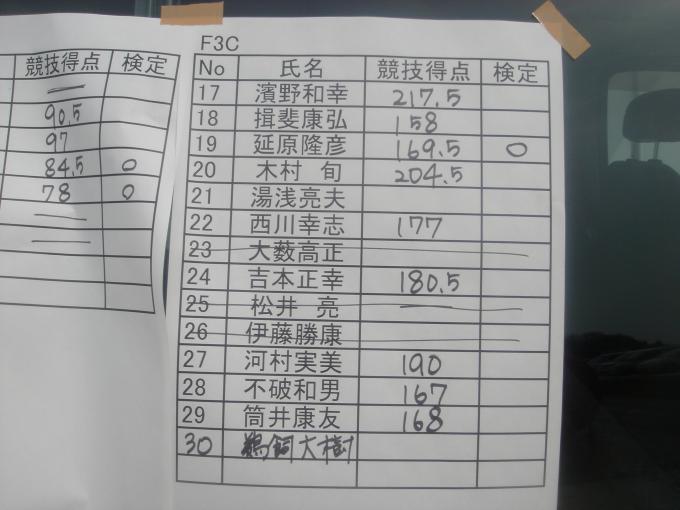 競技得点 検定
90.5
97
84.5 ○
78 ○
F3C
No 氏名 競技得点 検定
17 濱野和幸 217.5
18 揖斐康弘 158
19 延原隆彦 169.5 ○
20 木村 旬 204.5
21 湯浅亮夫
22 西川幸志 177
23 大薮高正
24 吉本正幸 180.5
25 松井 亮
26 伊藤勝康
27 河村実美 190
28 不破和男 167
29 筒井康友 168
30 鵜飼大樹